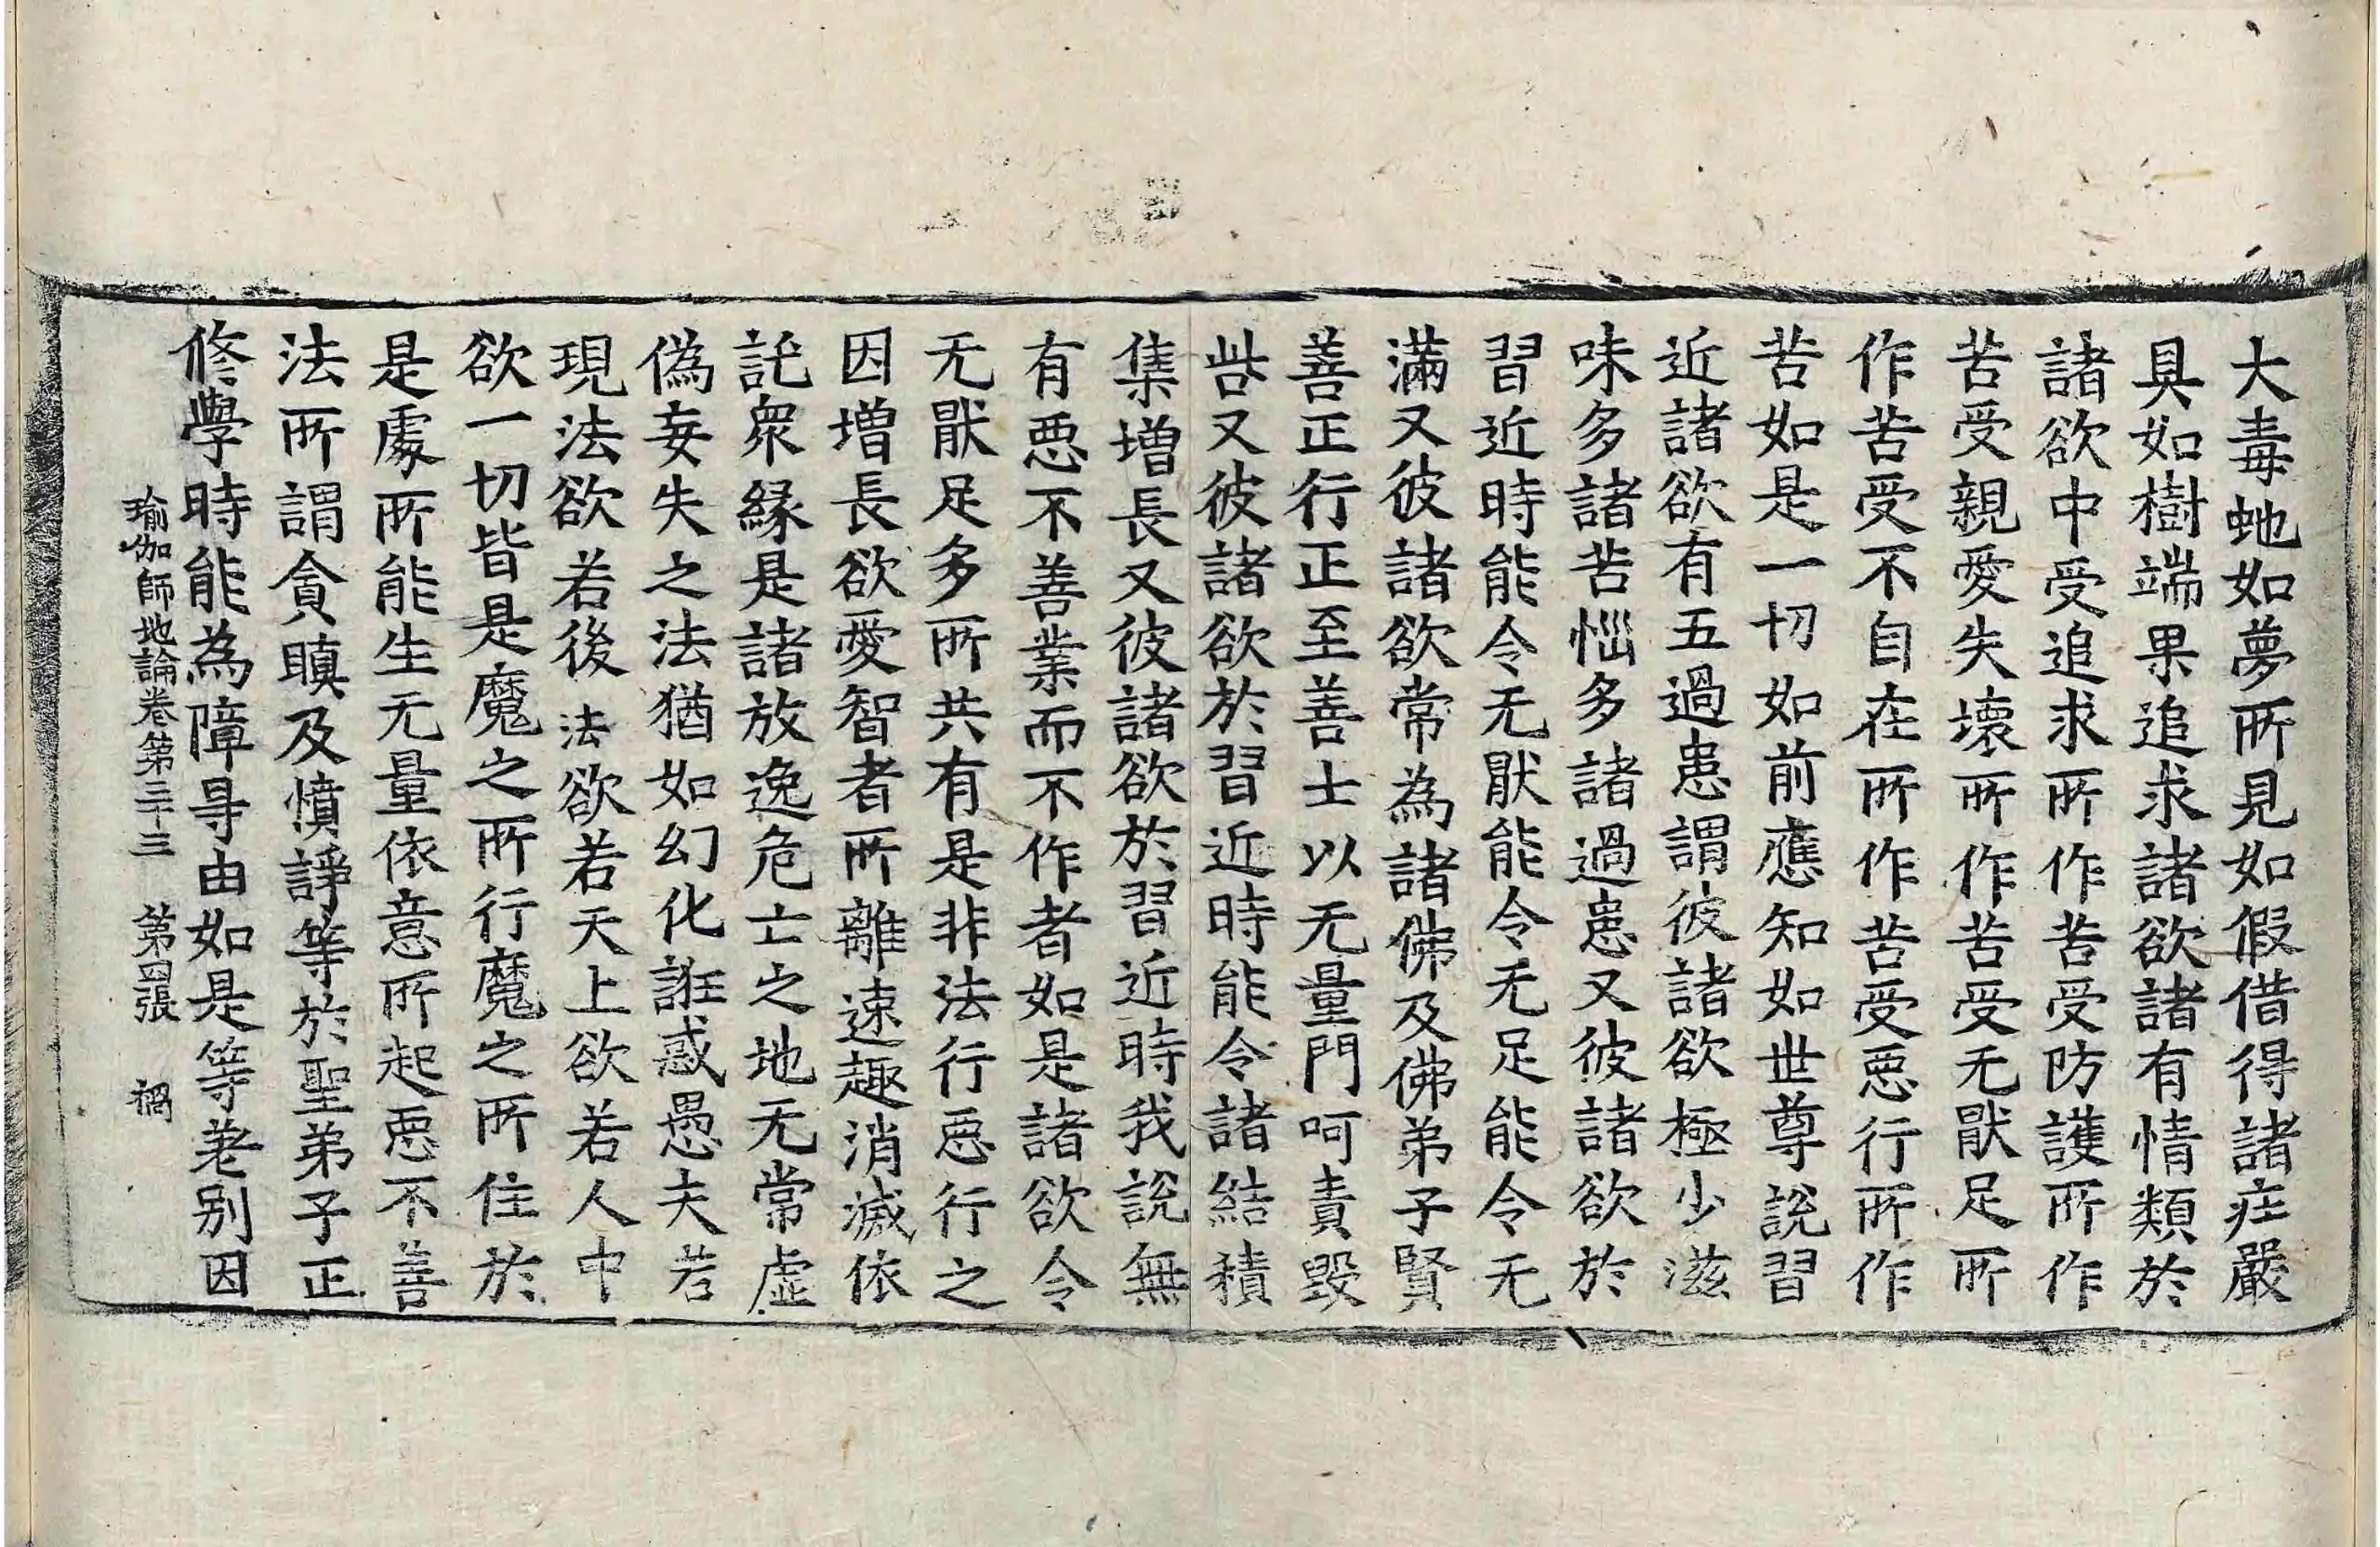 大毒虵如夢所見如假借得諸庄嚴
具如樹端果追求諸欲諸有情類於
諸欲中受追求所作苦受防護所作
苦受親愛失壞所作苦受无猒足所
作苦受不自在所作苦受惡行所作
苦如是一切如前應知如世尊説習
近諸欲有五過患謂彼諸欲極少滋
味多諸苦惱多諸過患又彼諸欲於
習近時能令无猒能令无足能令无
滿又彼諸欲常為諸佛及佛弟子賢
善正行正至善士以无量門呵責毀
呰又彼諸欲於習近時能令諸結積
集增長又彼諸欲於習近時我説無
有惡不善業而不作者如是諸欲令
无猒足多所共有是非法行惡行之
因增長欲愛智者所離速趣消滅依
託衆緣是諸放逸危亡之地无常虛
偽妄失之法猶如幻化誑惑愚夫若
現法欲若後法欲若天上欲若人中
欲一切皆是魔之所行魔之所住於
是處所能生无量依意所起惡不善
法所謂貪瞋及憤諍等於聖弟子正
修學時能為障㝵由如是等差别因
瑜伽師地論卷第三十三　第四張　禍